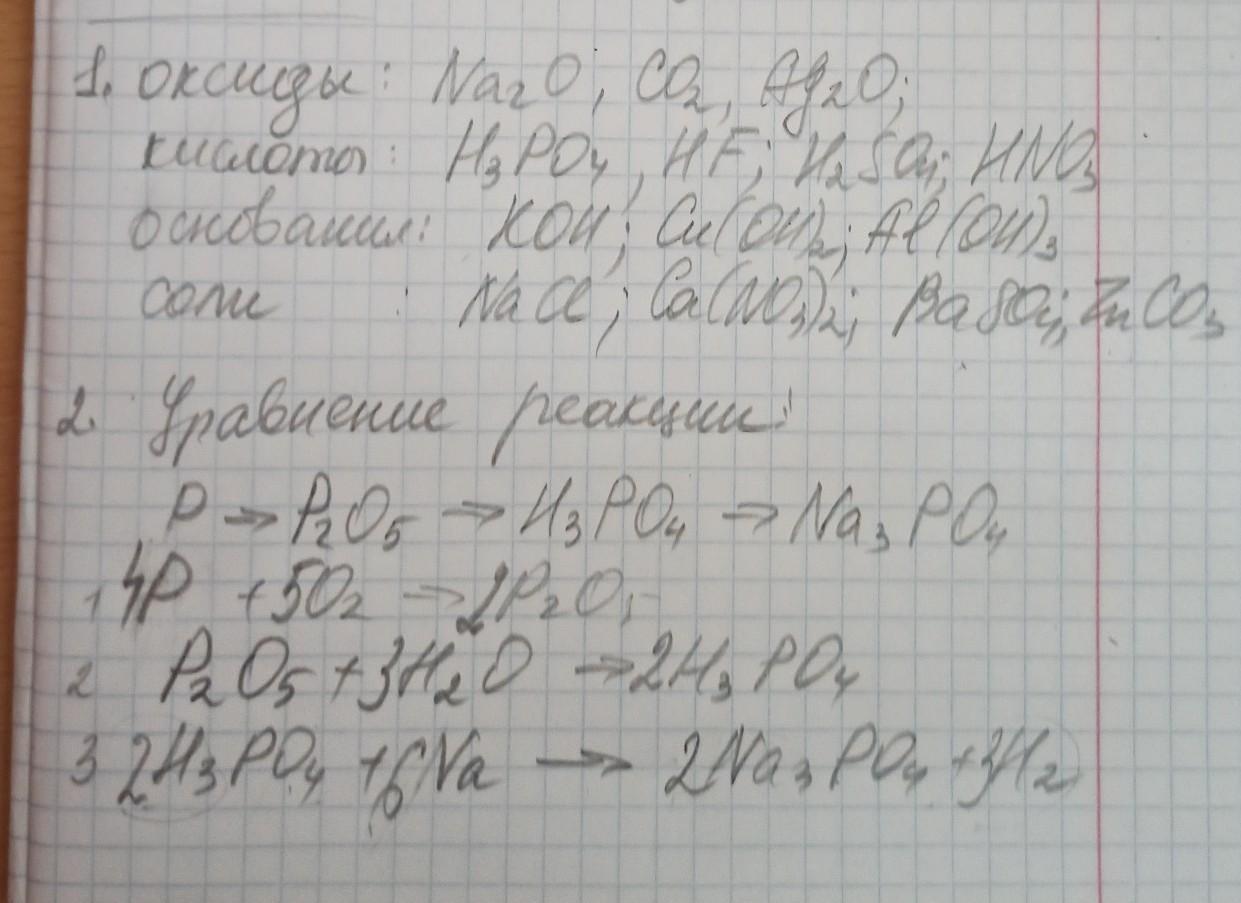 1. оксиды: Na₂O, CO₂, Ag₂O;
кислоты: H₃PO₄, HF; H₂SO₄; HNO₃
основания: KOH; Cu(OH)₂; Al(OH)₃
соли : NaCl; Ca(NO₃)₂; BaSO₄; ZnCO₃
2. Уравнение реакции:
P → P₂O₅ → H₃PO₄ → Na₃PO₄
1 4P + 5O₂ → 2P₂O₅
2 P₂O₅ + 3H₂O → 2H₃PO₄
3 2H₃PO₄ + 6Na → 2Na₃PO₄ + 3H₂